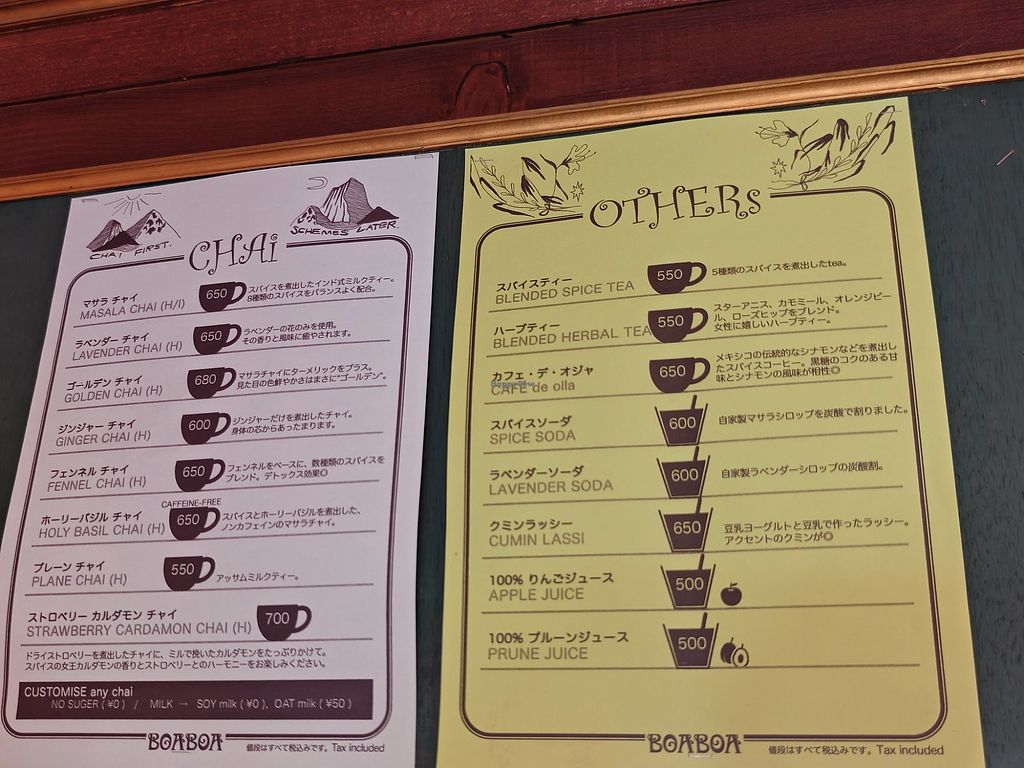 CHAI FIRST.
SCHEMES LATER.
CHAi
マサラ チャイ
MASALA CHAI (H/I)
650
スパイスを煮出したインド式ミルクティー。
8種類のスパイスをバランスよく配合。
ラベンダー チャイ
LAVENDER CHAI (H)
650
ラベンダーの花のみを使用。
その香りと風味に癒やされます。
ゴールデン チャイ
GOLDEN CHAI (H)
680
マサラチャイにターメリックをプラス。
見た目の色鮮やかさはまさに“ゴールデン”。
ジンジャー チャイ
GINGER CHAI (H)
600
ジンジャーだけを煮出したチャイ。
身体の芯からあったまります。
フェンネル チャイ
FENNEL CHAI (H)
650
フェンネルをベースに、数種類のスパイスを
ブレンド。デトックス効果◎
CAFFEINE-FREE
ホーリーバジル チャイ
HOLY BASIL CHAI (H)
650
スパイスとホーリーバジルを煮出した、
ノンカフェインのマサラチャイ。
プレーン チャイ
PLANE CHAI (H)
550
アッサムミルクティー。
ストロベリー カルダモン チャイ
STRAWBERRY CARDAMON CHAI (H)
700
ドライストロベリーを煮出したチャイに、ミルで挽いたカルダモンをたっぷりかけて。
スパイスの女王カルダモンの香りとストロベリーとのハーモニーをお楽しみください。
CUSTOMISE any chai
NO SUGER ( ¥0 ) / MILK → SOY milk ( ¥0 ), OAT milk ( ¥50 )
BOABOA
値段はすべて税込みです。Tax included
OTHERs
スパイスティー
BLENDED SPICE TEA
550
5種類のスパイスを煮出したtea。
ハーブティー
BLENDED HERBAL TEA
550
スターアニス、カモミール、オレンジピー
ル、ローズヒップをブレンド。
女性に嬉しいハーブティー。
カフェ・デ・オジャ
CAFE de olla
650
メキシコの伝統的なシナモンなどを煮出し
たスパイスコーヒー。黒糖のコクのある甘
味とシナモンの風味が相性◎
スパイスソーダ
SPICE SODA
600
自家製マサラシロップを炭酸で割りました。
ラベンダーソーダ
LAVENDER SODA
600
自家製ラベンダーシロップの炭酸割。
クミンラッシー
CUMIN LASSI
650
豆乳ヨーグルトと豆乳で作ったラッシー。
アクセントのクミンが◎
100% りんごジュース
APPLE JUICE
500
100% プルーンジュース
PRUNE JUICE
500
BOABOA
値段はすべて税込みです。Tax included